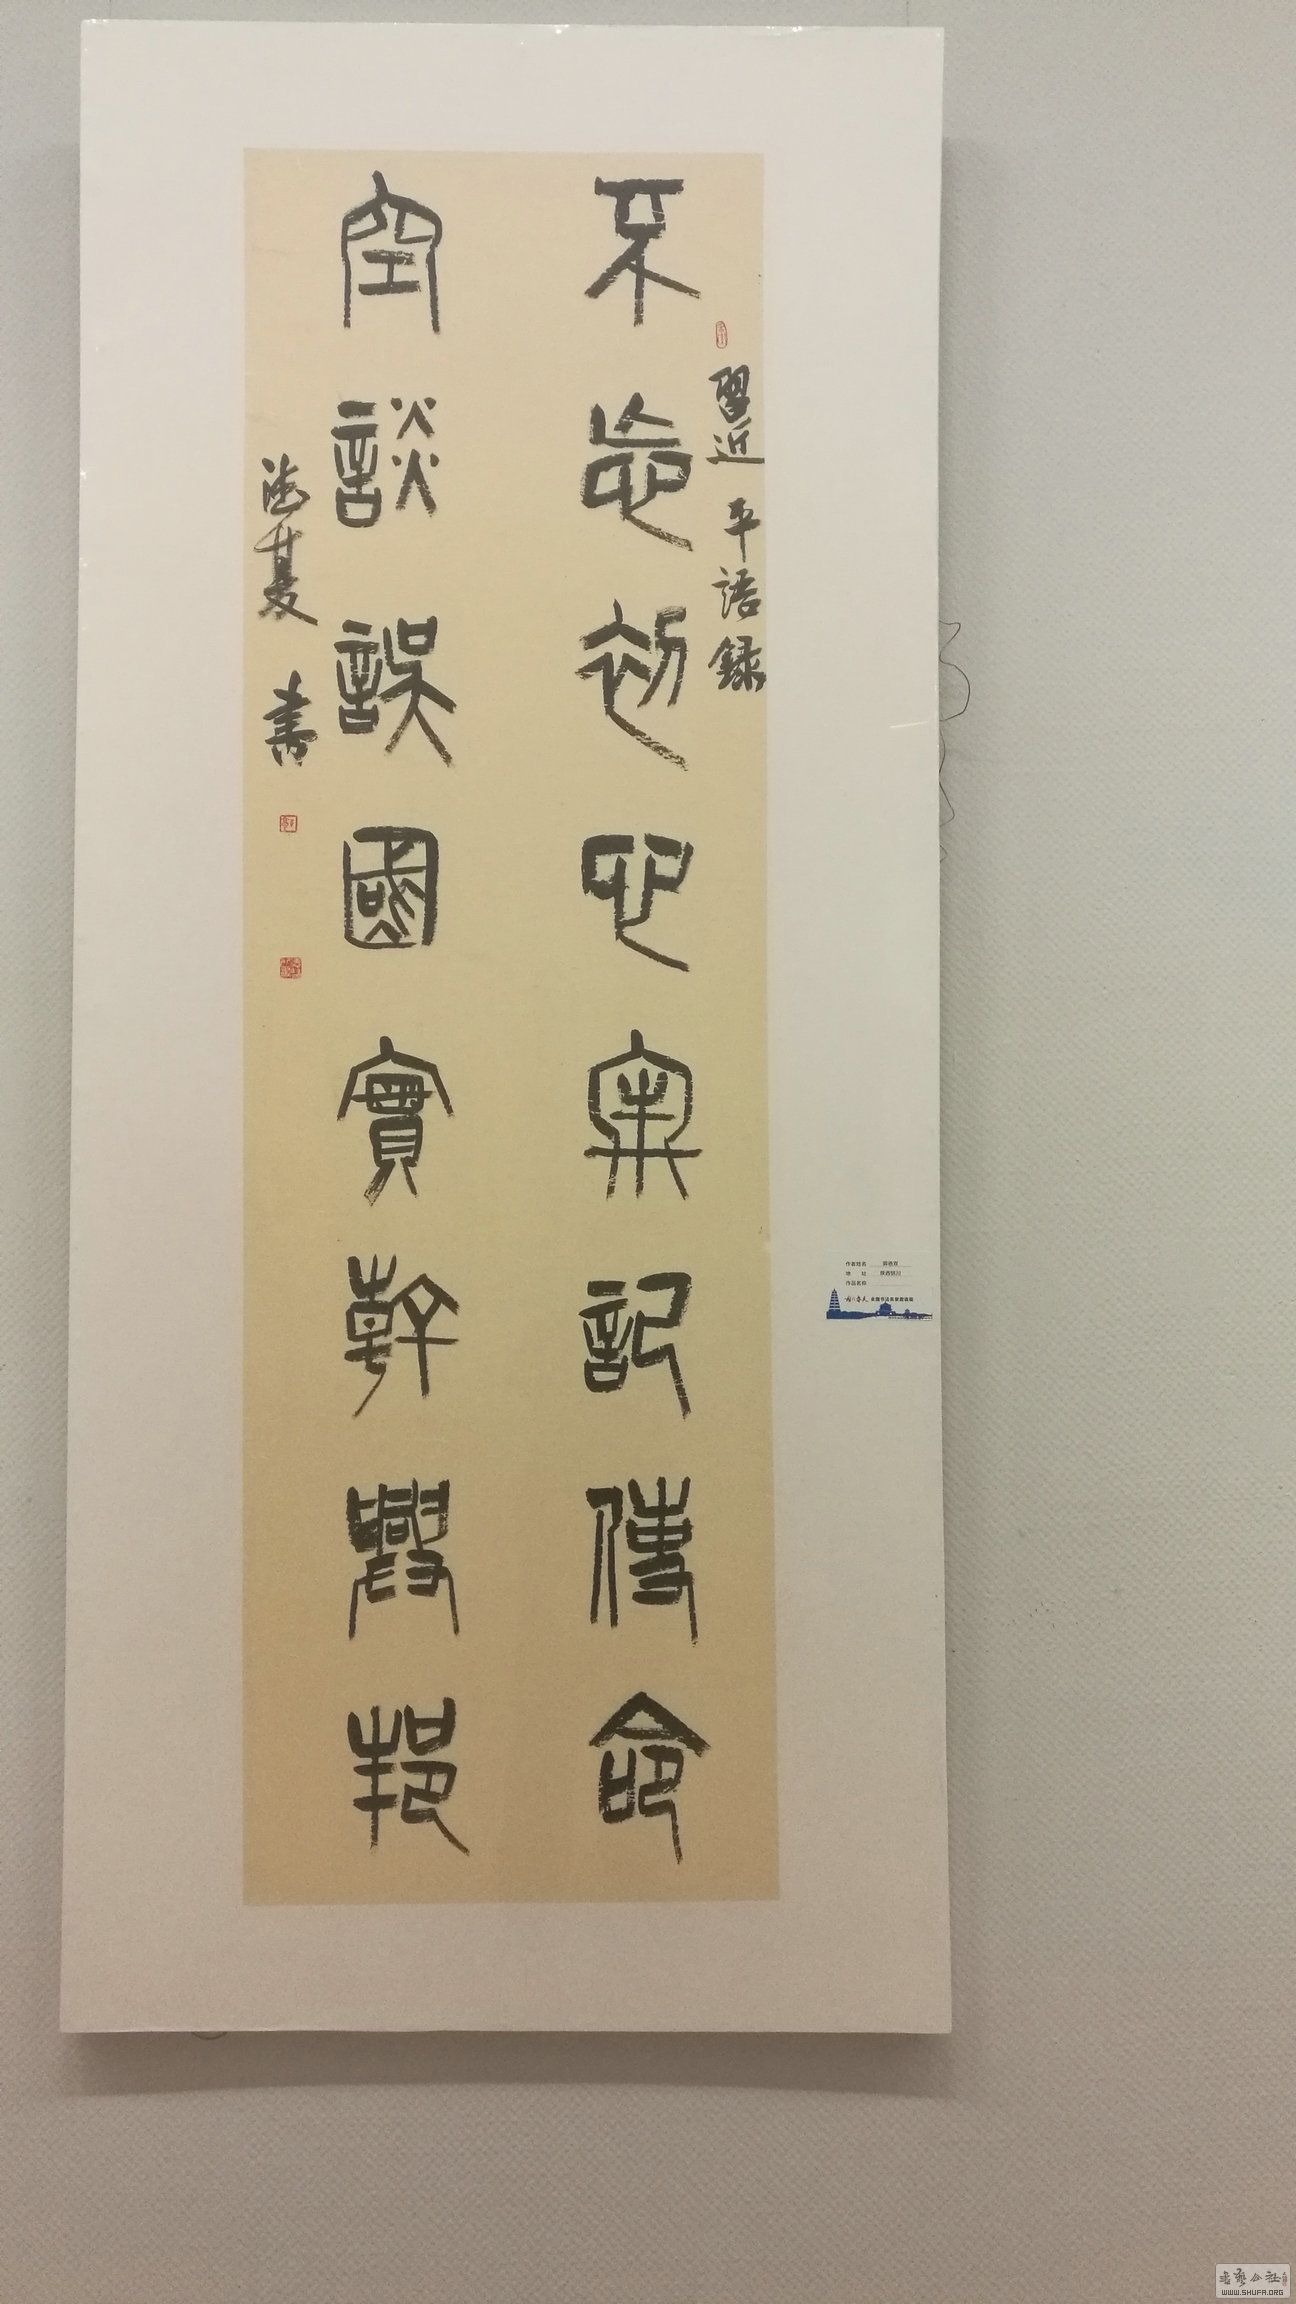 習近平語録
不忘初心牢記使命
空談誤國實幹興邦
書
作者姓名
地 址 陕西铜川
作品名称
全国书法名家邀请展
书艺公社
WWW.SHUFA.ORG